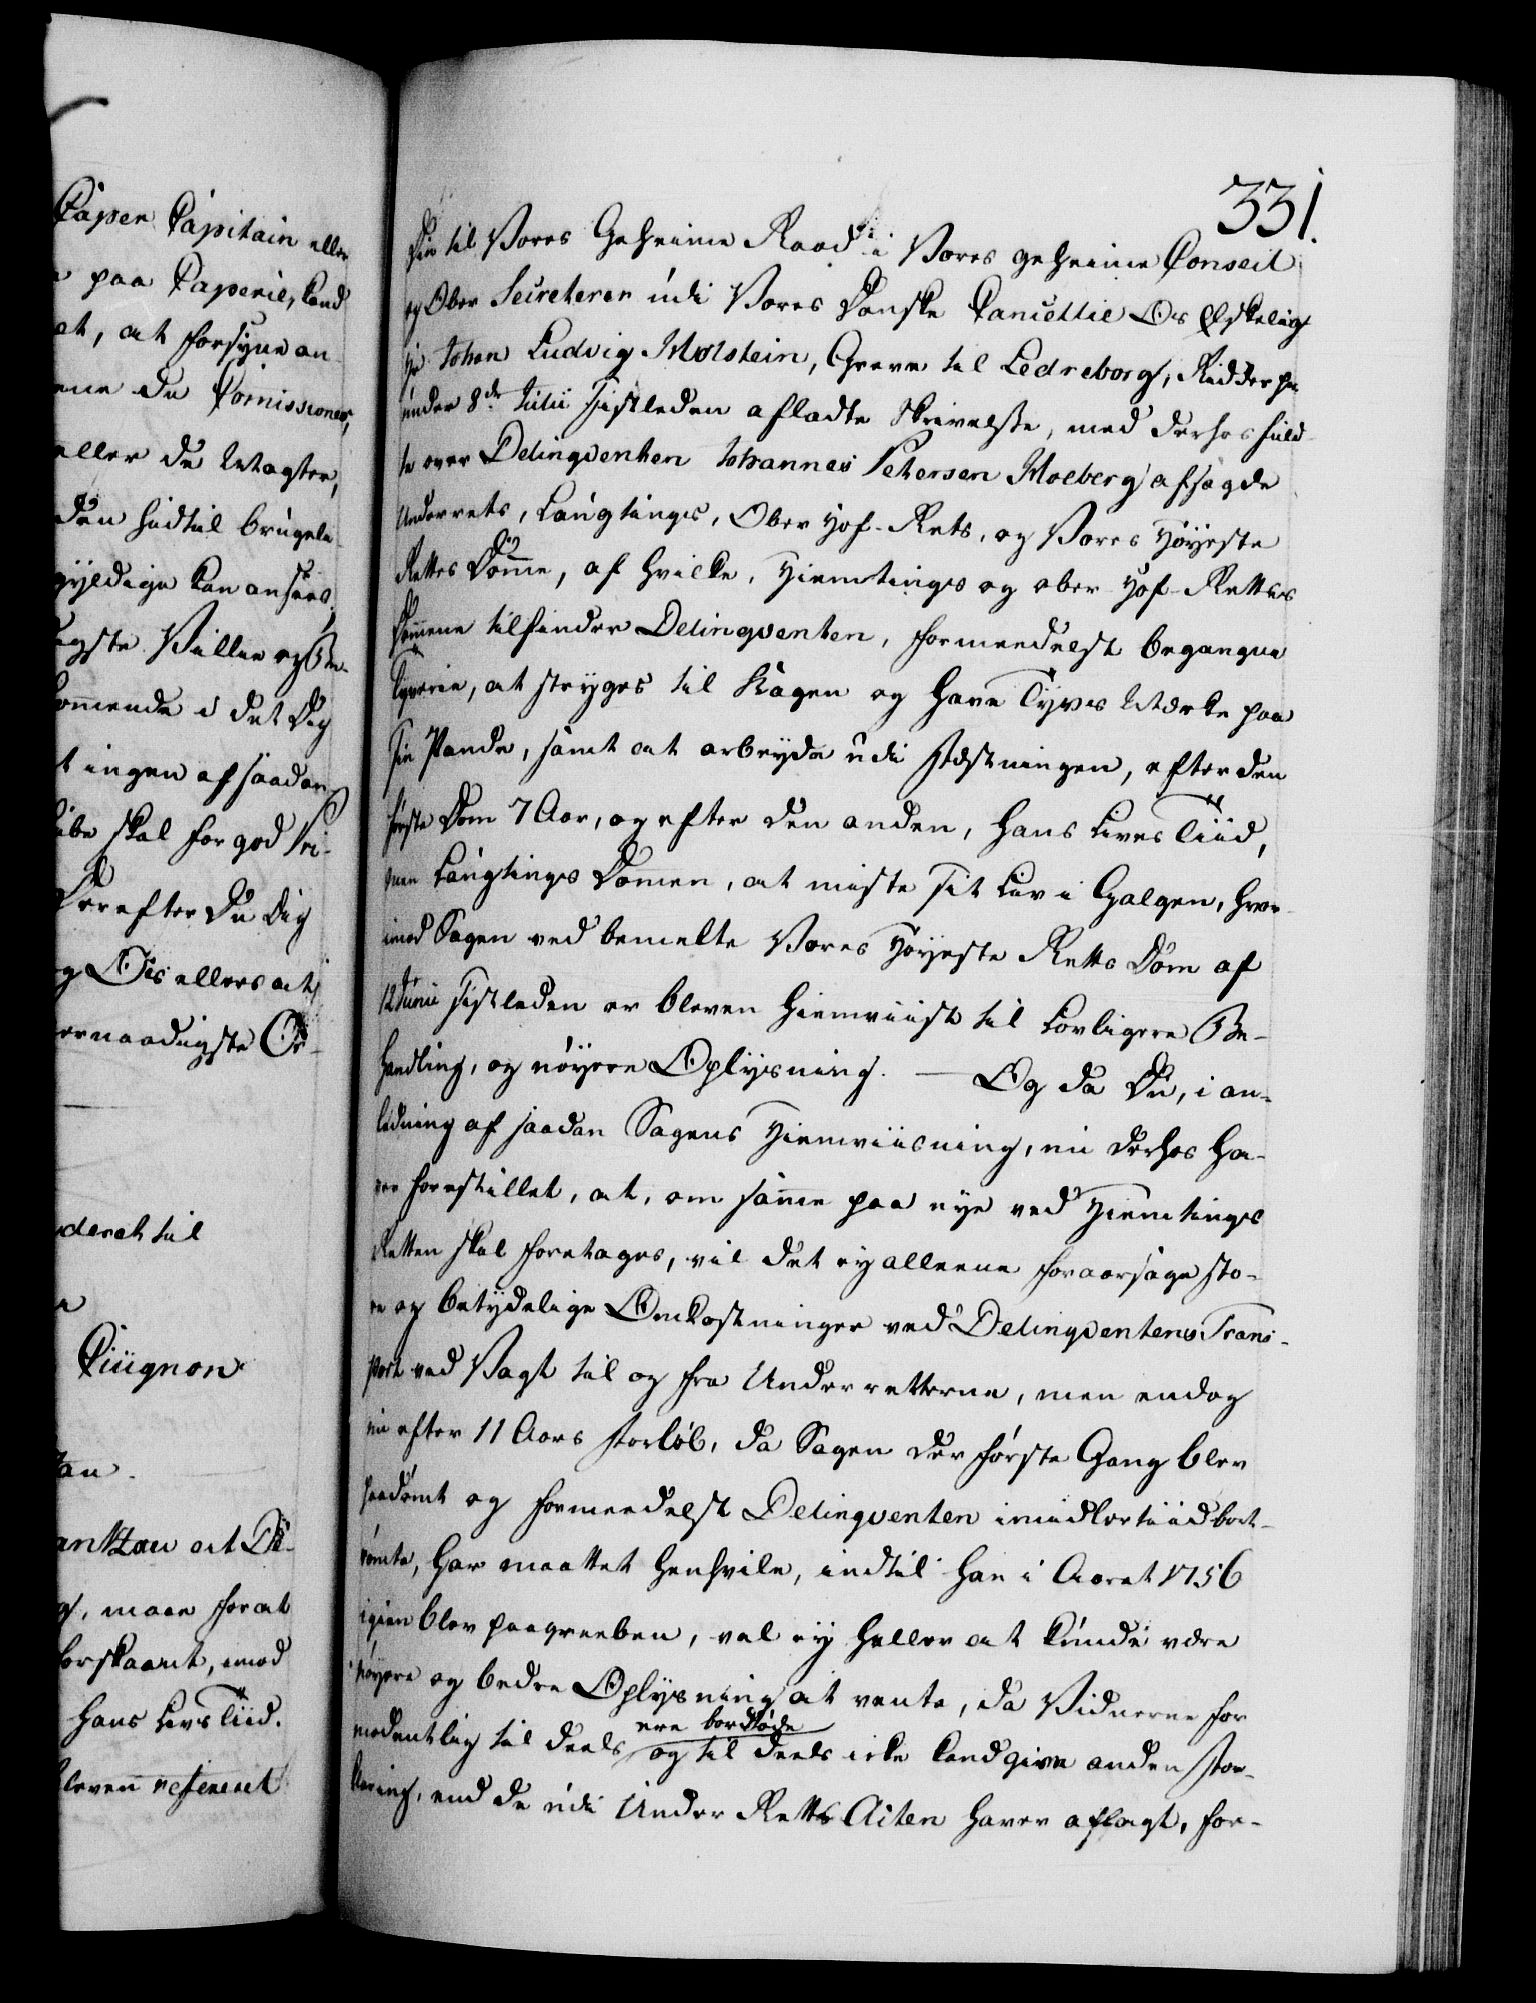 Caper Capitain eller
paa Caperie, kand
et, at forsyne an
ene de Comissioner,
eller de Magter,
den hidtil brugeli
gyldige kan ansees,
igste Villie og Be-
kommende i det Dig
t ingen af saadan
ibe skal for god Pri-
Derefter Du dig
og Os ellers at
ernaadigste Or-
deret til
Cuignon
an.
antzau at De-
g, maae for at
forskaant, imod
hans Livs Tiid.
bleven refereret
331.
Din til Vores Geheime Raad i Vores geheime Conseil
og Ober Secreterer udi Vores Danske Cancellie Os Elskelig
Hr. Johan Ludvig Holstein, Greve til Ledreborg, Ridder pp
under 8de Julii sistleden afladte Skrivelse, med derhos fuld-
te over Delinqventen Johannes Petersen Moeberg afsagde
Underrets, Laugtings, Ober Hof-Rets, og Vores Höyeste
Rettes Domme, af hvilke, Hiemtings og ober Hof-Rettes
Dommene tilfinder Delinqventen, formedelst begangne
Tyverie, at stryges til Kagen og have Tyvs Mærke paa
sin Pande, samt at arbeyde udi Fæstningen, efter den
første Dom 7 Aar, og efter den anden, hans Lives Tiid,
men Laugtings Dommen, at miste sit Liv i Galgen, hvor-
imod Sagen ved bemelte Vores Höyeste Retts Dom af
12 Junii sistleden er bleven hiemviist til Lovligere Be-
handling, og nöyere Oplysning. — Og da Du, i an-
ledning af saadan Sagens Hiemviisning, nu derhos ha-
ver forestillet, at, om samme paa nye ved Hiemtings
Retten skal foretages, vil det ey alleene foraarsage sto-
re og betydelige Omkostninger ved Delinqventens Trans-
port ved Vagt til og fra Underretterne, men endog
nu efter 11 Aars Forløb, da Sagen der første Gang blev
paadömt og formedelst Delinqventen imidlertiid bort-
römte, har maattet henhvile, indtil han i Aaret 1756
igien blev paagreeben, vel ey heller at kunde være
nöyere og bedre Oplysning at vente, da Vidnerne for
modentlig til deels ere bortdöde og til deels icke kand give anden For-
klaring, end de udi Under Retts Acten haver aflagt, for-